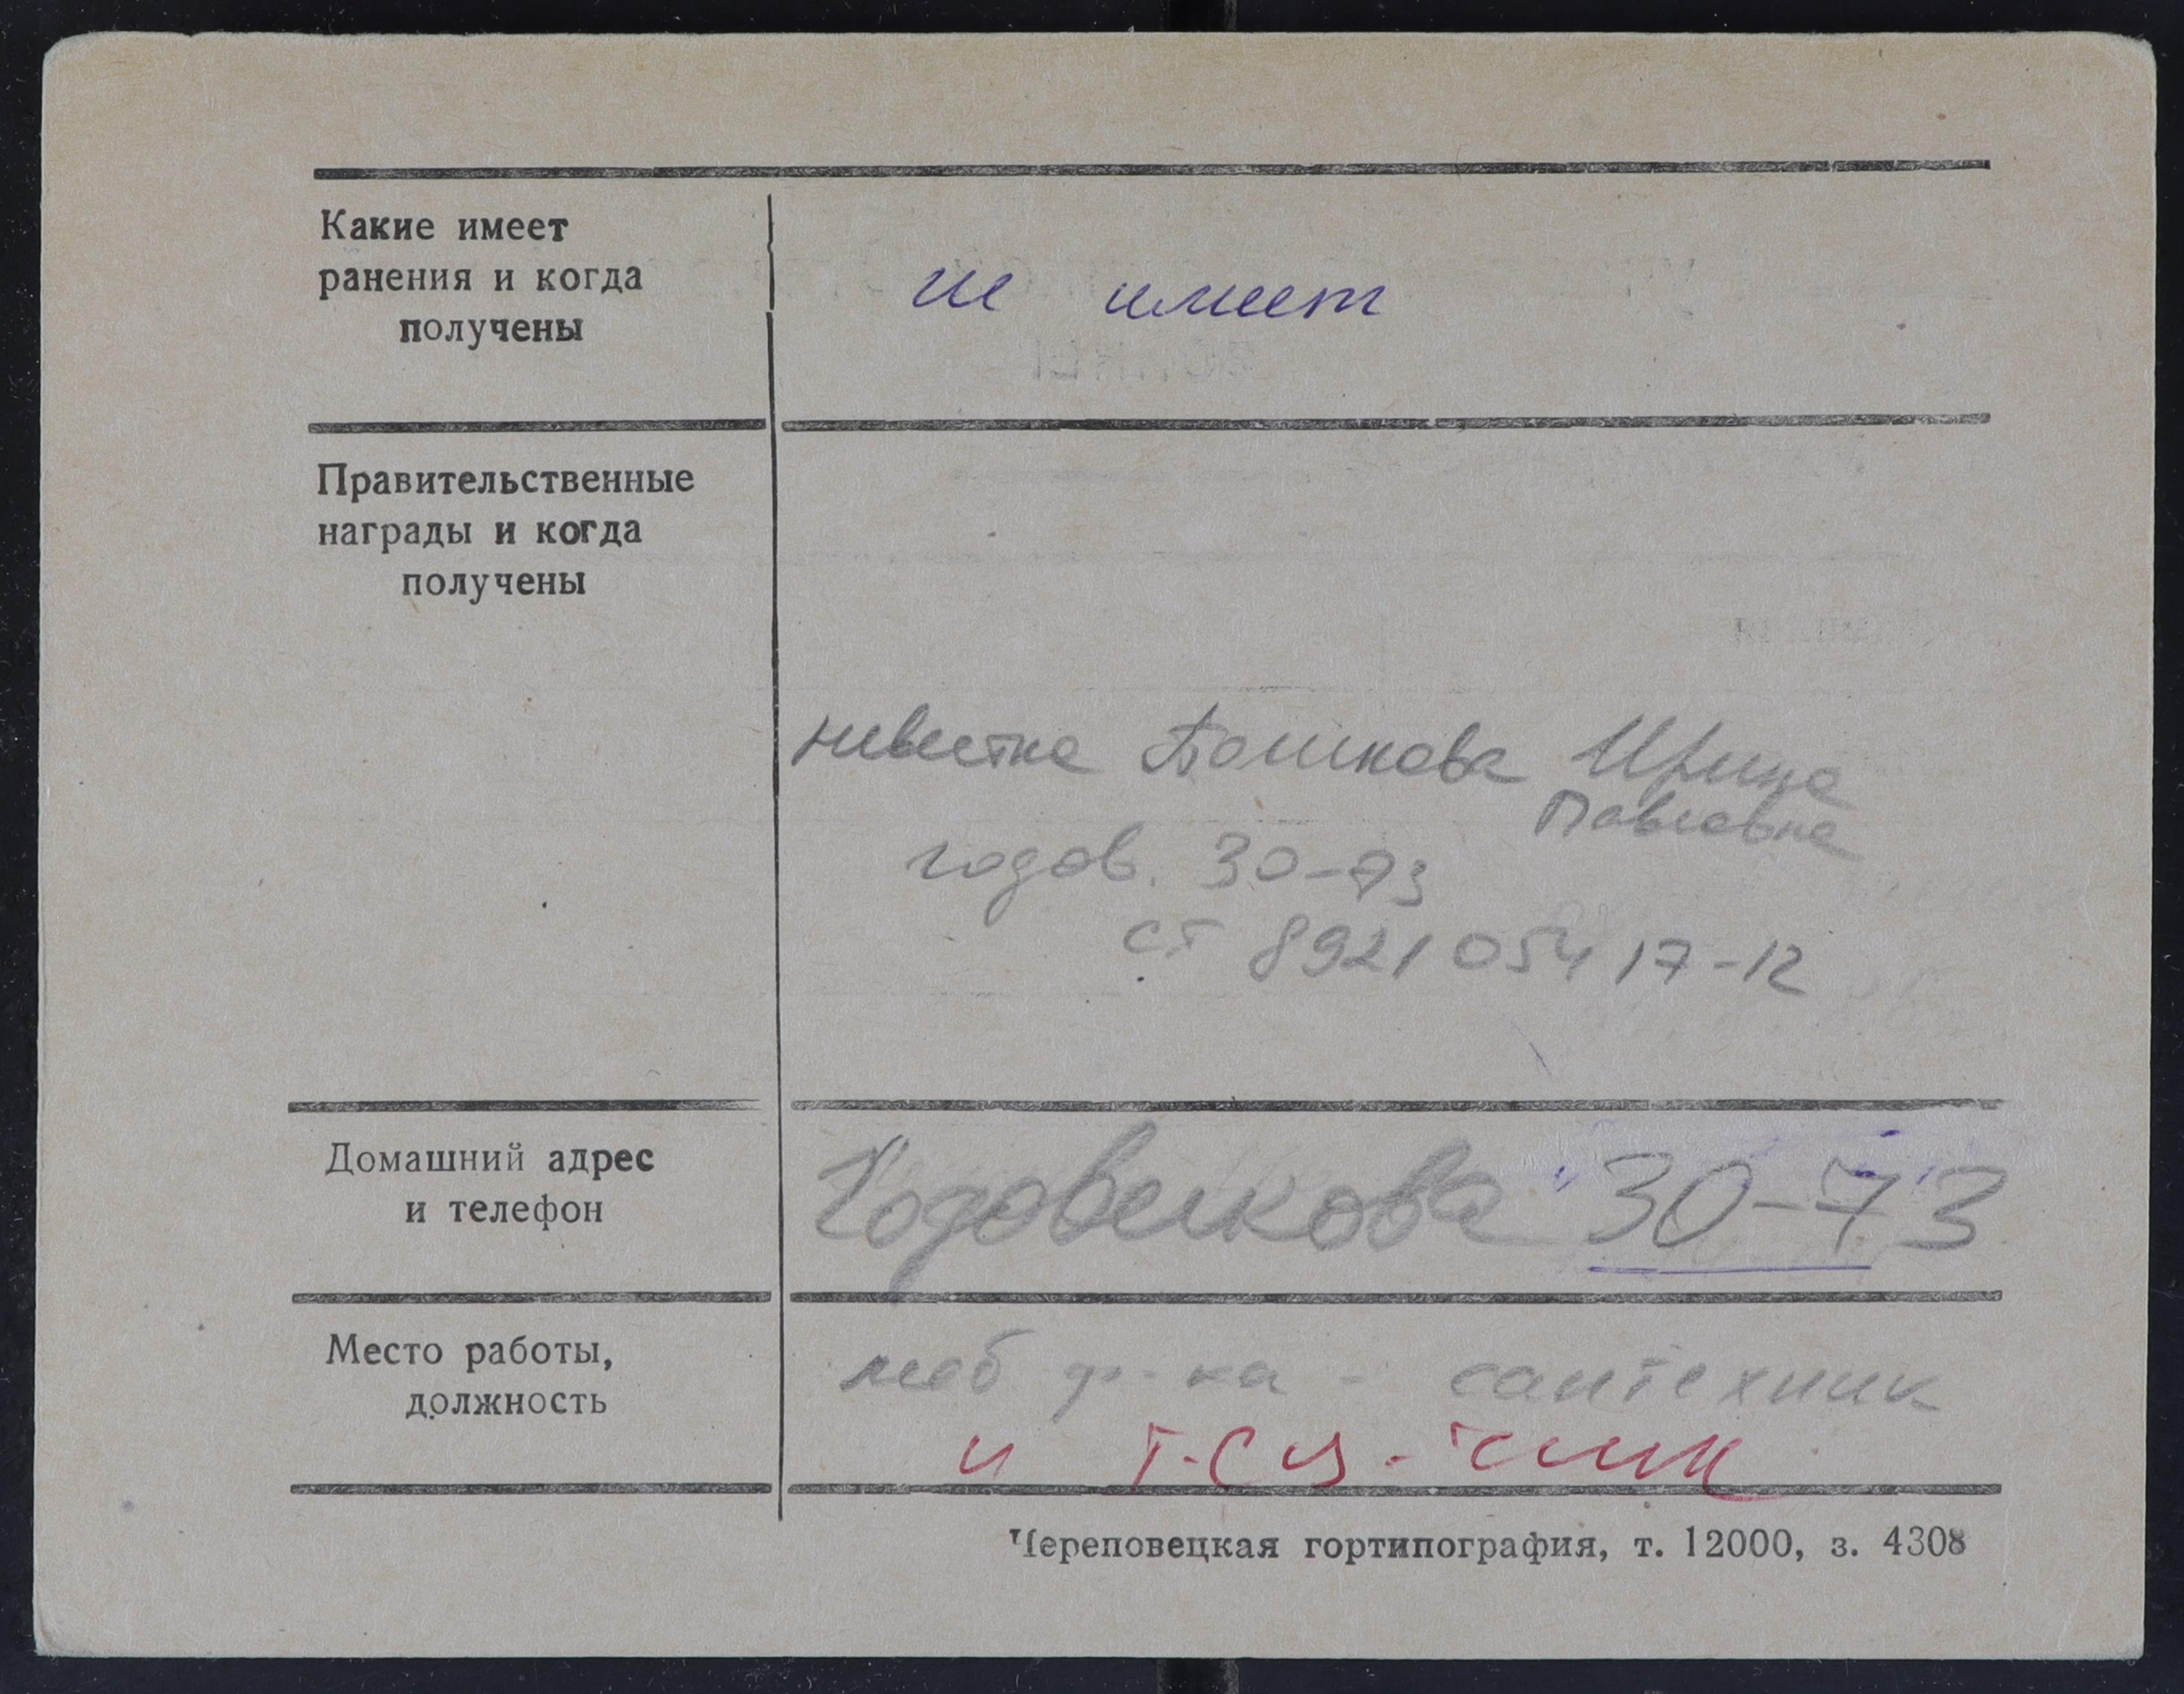 Какие имеет
ранения и когда
получены
не имеет
Правительственные
награды и когда
получены
невестка Башкова Ирина
Павловна
годов. 30-73
ст 8921 054 17-12
Домашний адрес
и телефон
Годовикова 30-73
Место работы,
должность
меб ф-ка - сантехник
и
Череповецкая гортипография, т. 12000, з. 4308